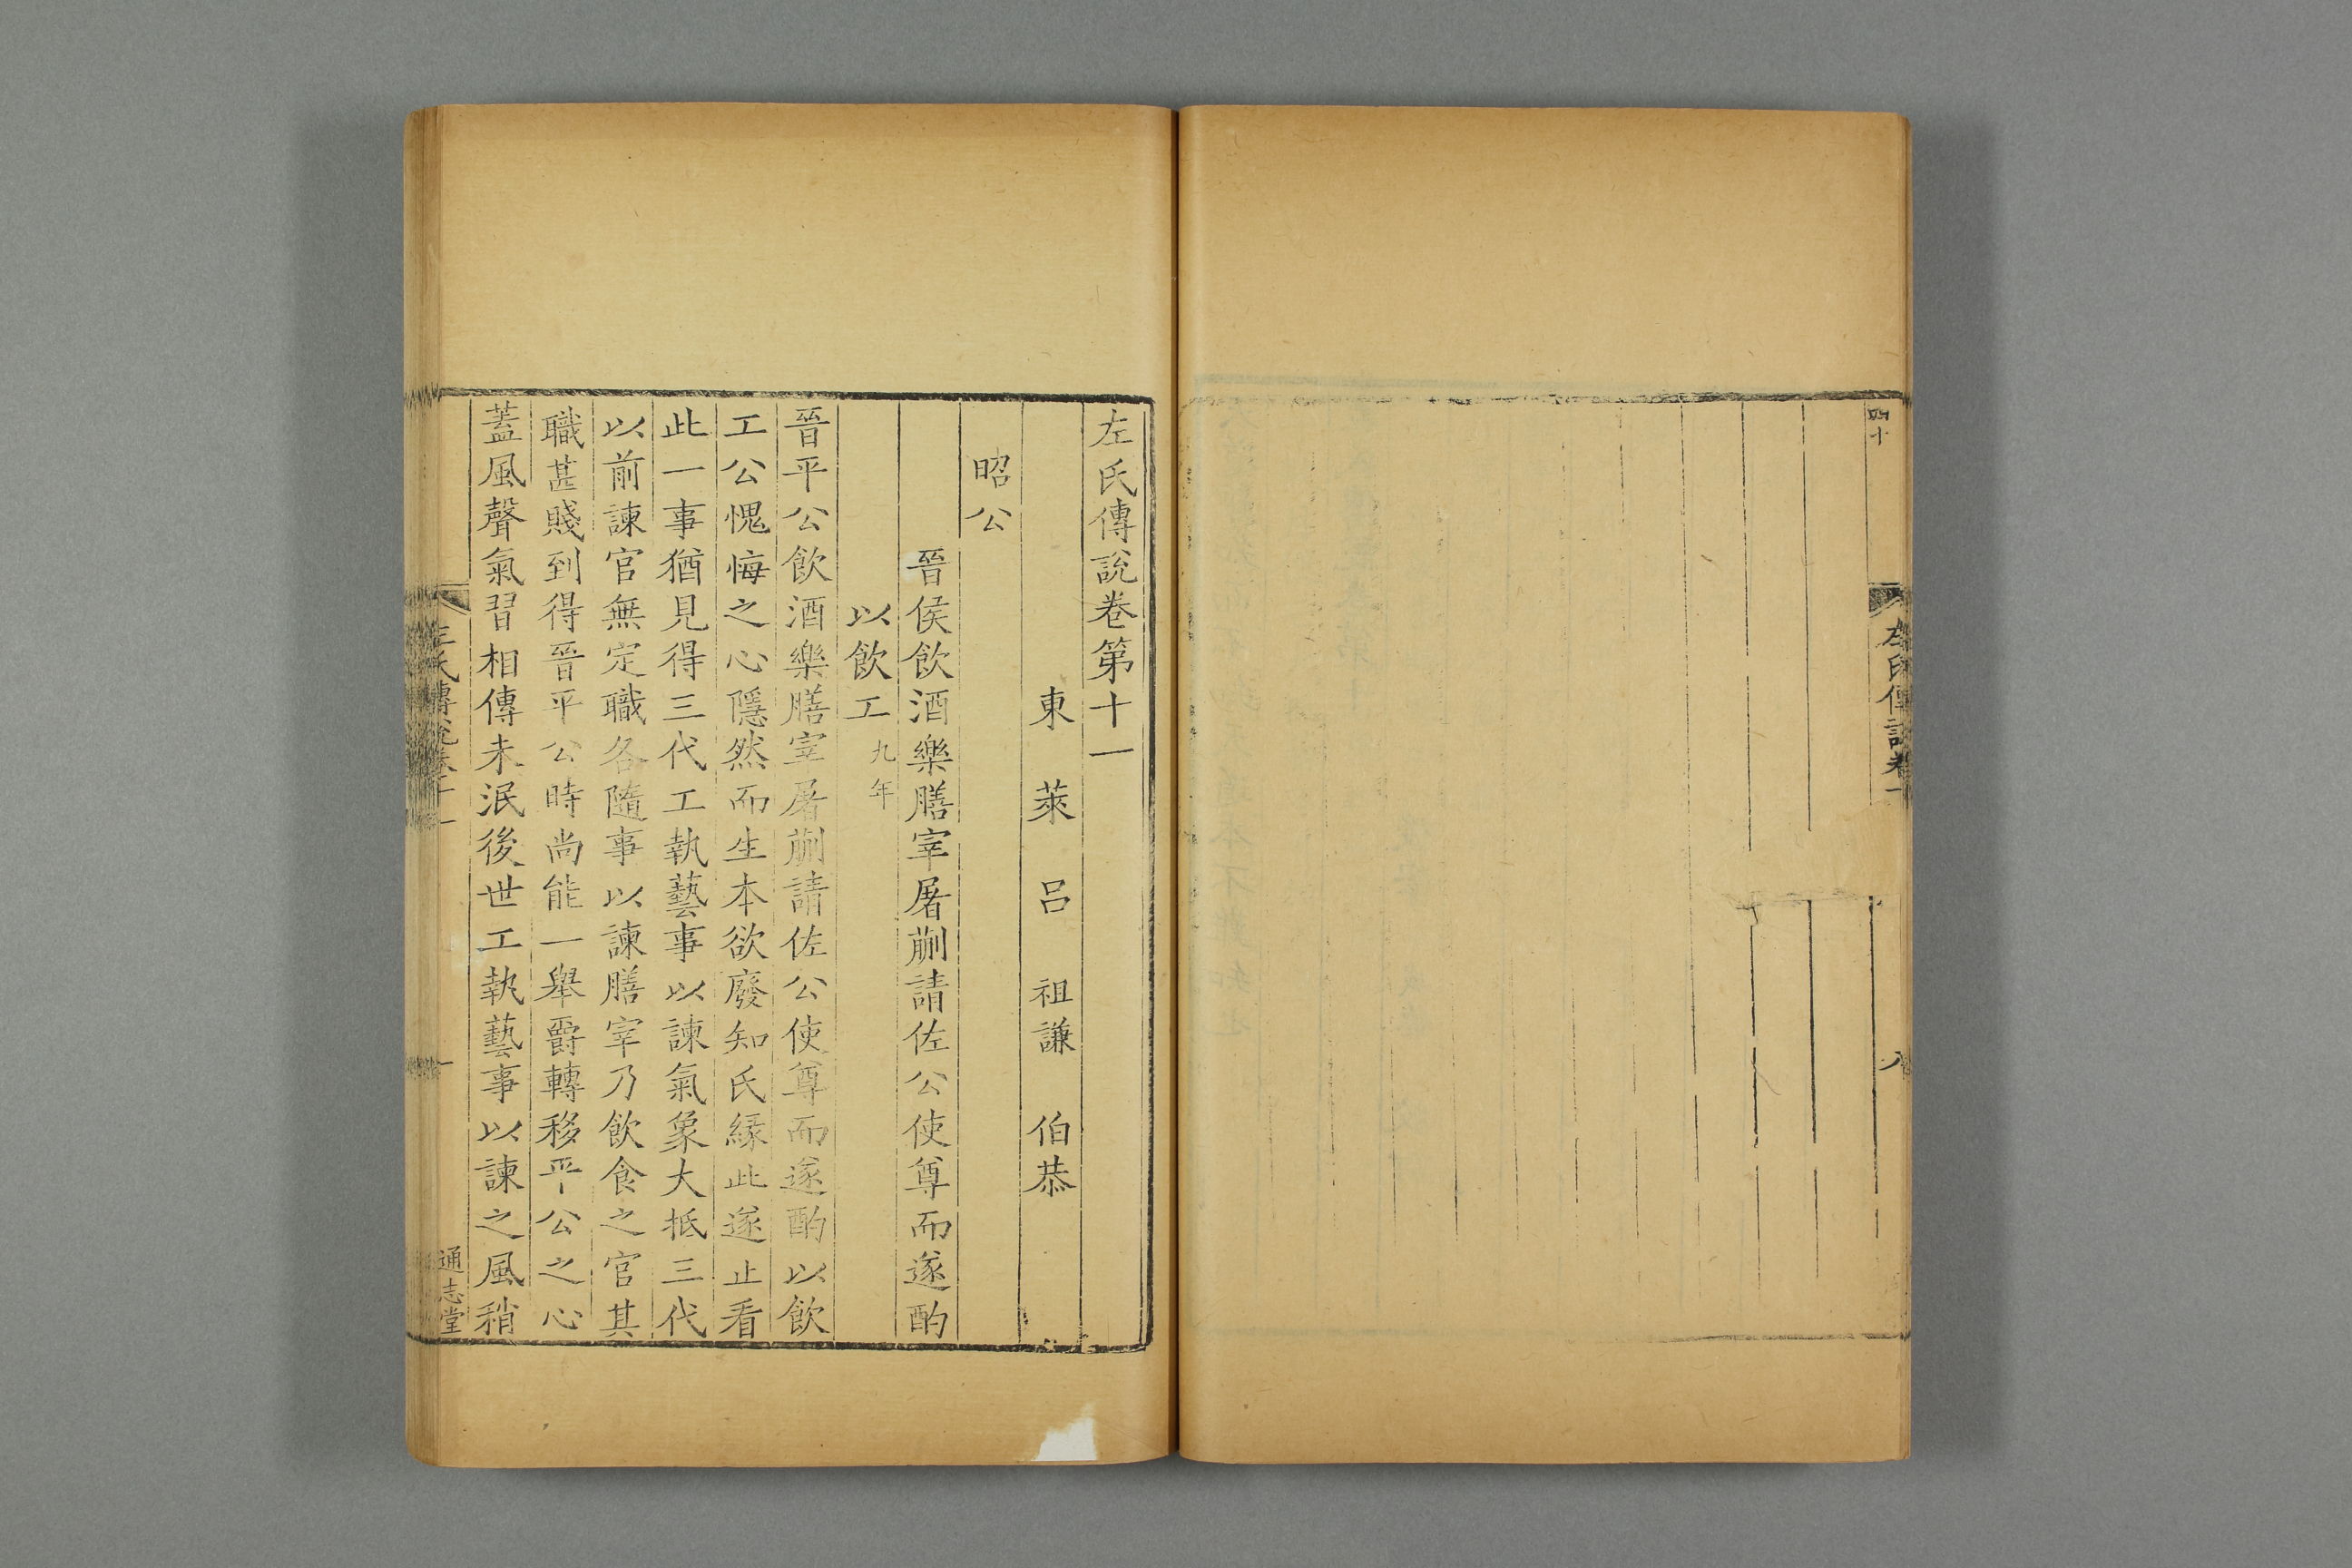 左氏傳說卷十
八
左氏傳說卷第十一
東萊呂祖謙伯恭
昭公
晉侯飲酒樂膳宰屠蒯請佐公使尊而遂酌
以飲工九年
晉平公飲酒樂膳宰屠蒯請佐公使尊而遂酌以飲
工公愧悔之心隱然而生本欲廢知氏緣此遂止看
此一事猶見得三代工執藝事以諫氣象大抵三代
以前諫官無定職各隨事以諫膳宰乃飲食之官其
職甚賤到得晉平公時尚能一舉爵轉移平公之心
蓋風聲氣習相傳未泯後世工執藝事以諫之風稍
左氏傳說卷十一
一
通志堂